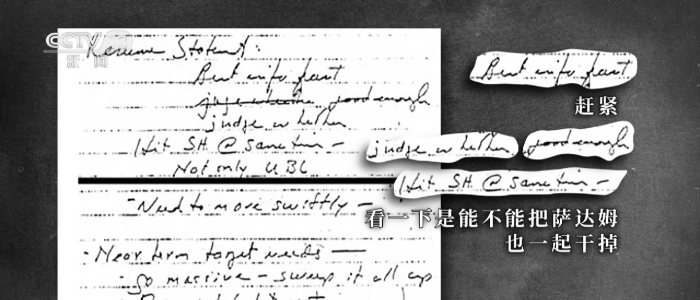 CCTV
新闻
Resume Statent:
Best info fast
good enough
judge whether
Hit SH @ same time –
Not only UBL
- Need to move swiftly –
- Near term target needs –
- go massive – sweep it all up
Best info fast
赶紧
judge whether good enough
Hit SH @ same time –
看一下是能不能把萨达姆
也一起干掉